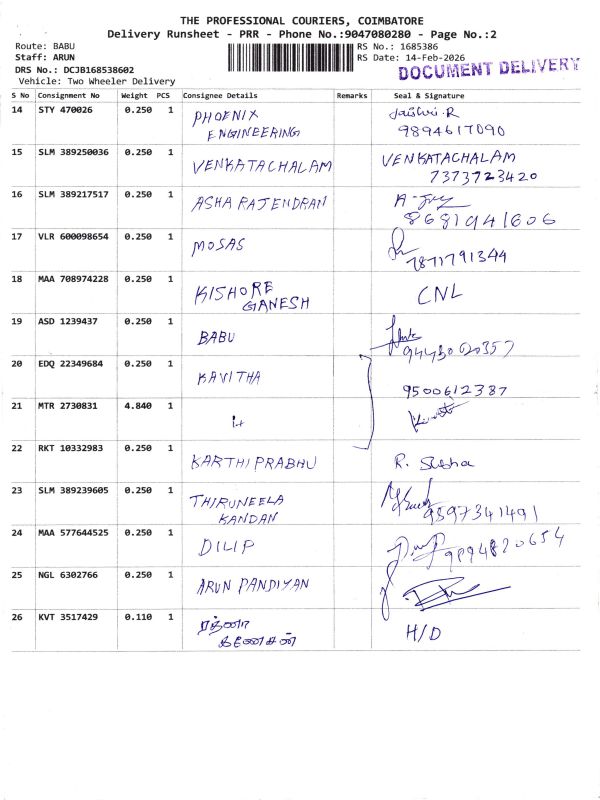 THE PROFESSIONAL COURIERS, COIMBATORE
Delivery Runsheet - PRR - Phone No.:9047080280 - Page No.:2
Route: BABU
RS No.: 1685386
Staff: ARUN
RS Date: 14-Feb-2026
DRS No.: DCJB168538602
DOCUMENT DELIVERY
Vehicle: Two Wheeler Delivery
S No Consignment No Weight PCS Consignee Details Remarks Seal & Signature
14 STY 470026 0.250 1 PHOENIX
ENGINEERING
9894617090
15 SLM 389250036 0.250 1 VENKATACHALAM VENKATACHALAM
7373723420
16 SLM 389217517 0.250 1 ASHA RAJENDRAN
8681941606
17 VLR 600098654 0.250 1 MOSAS
7871791344
18 MAA 708974228 0.250 1 KISHORE
GANESH
CNL
19 ASD 1239437 0.250 1 BABU
20 EDQ 22349684 0.250 1 KAVITHA
9500612387
21 MTR 2730831 4.840 1
22 RKT 10332983 0.250 1 KARTHI PRABHU R. Subha
23 SLM 389239605 0.250 1 THIRUNEELA
KANDAN
9597341491
24 MAA 577644525 0.250 1 DILIP
9894820654
25 NGL 6302766 0.250 1 ARUN PANDIYAN
26 KVT 3517429 0.110 1 ரத்னா
கணேசன்
H/D